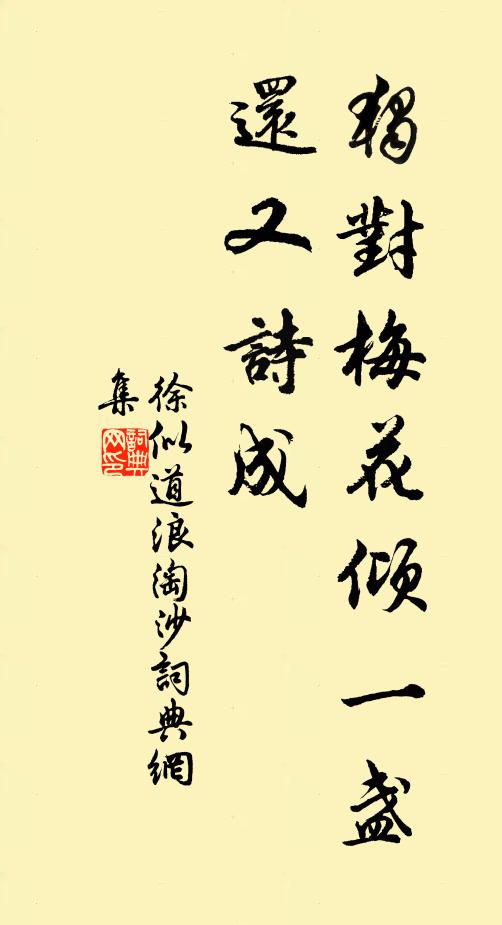 獨對梅花傾一盞
還又詩成
徐似道浪淘沙詞典網
集
詞典網印